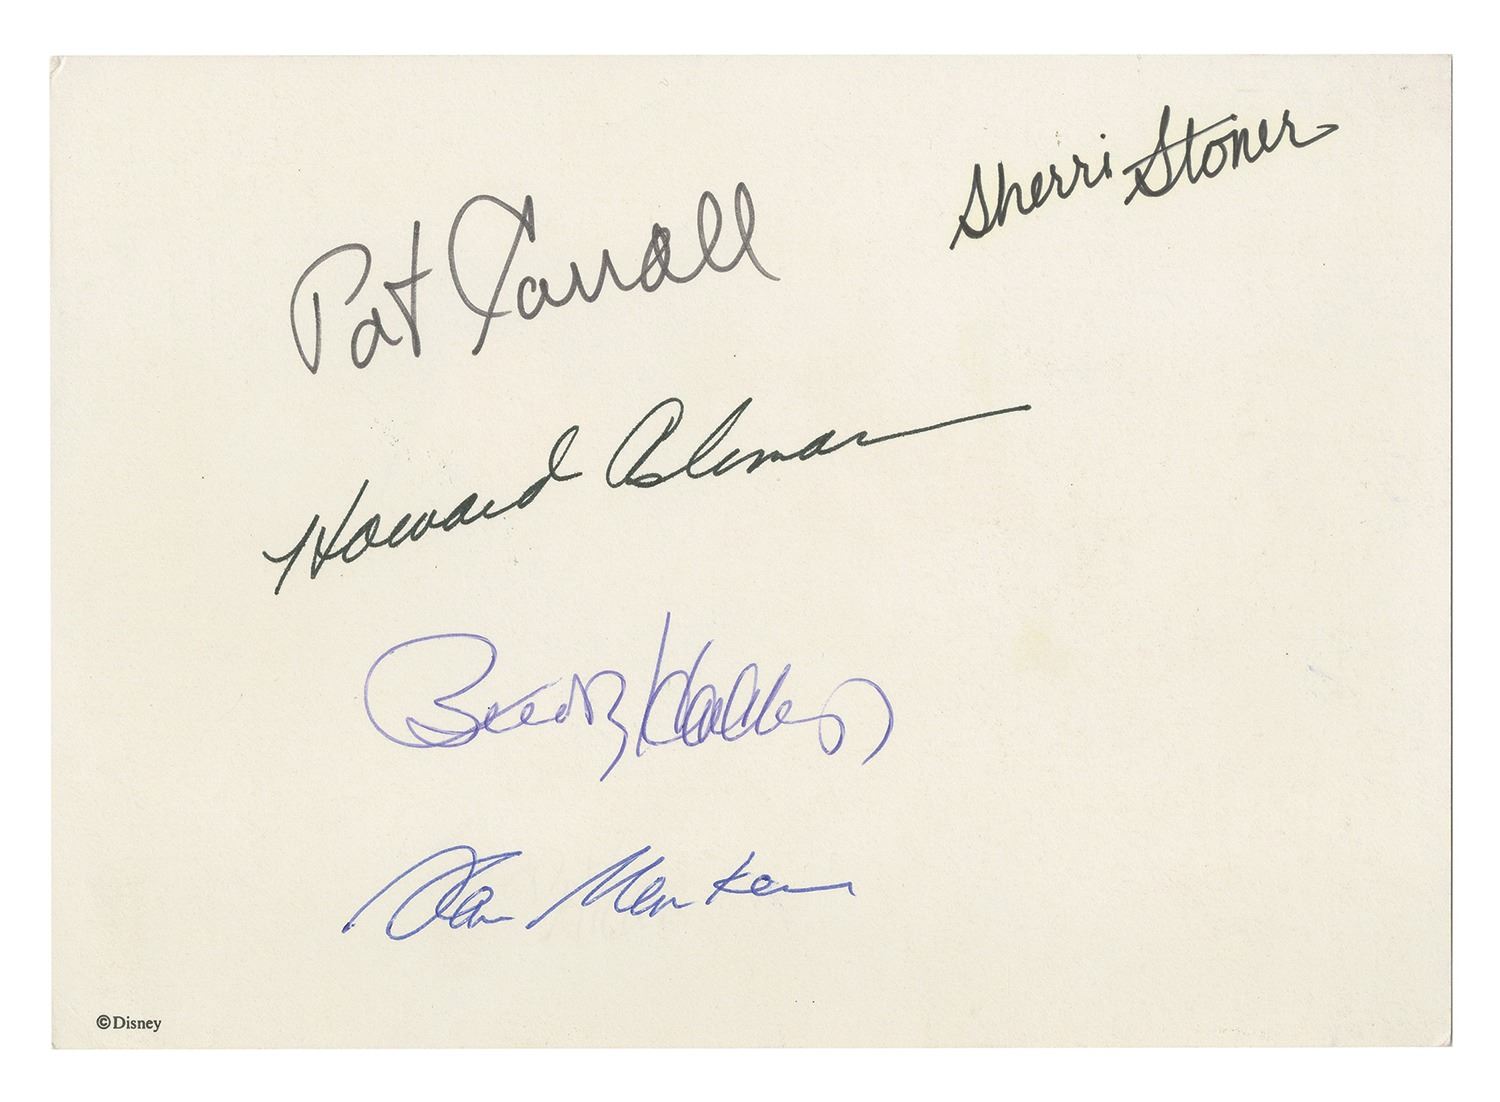 Sherri Stoner
Pat Carroll
Howard Ashman
Buddy Hackett
Alan Menken
©Disney